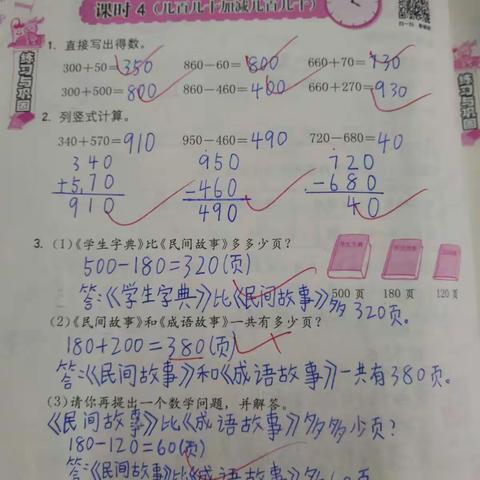 课时 4 (几百几十加减几百几十)
1. 直接写出得数。
300+50=350 860-60=800 660+70=730
300+500=800 860-460=400 660+270=930
2. 列竖式计算。
340+570=910 950-460=490 720-680=40
340 950 720
+570 -460 -680
910 490 40
练习与巩固
练习与巩固
3. (1)《学生字典》比《民间故事》多多少页?
500-180=320(页)
500 页 180 页 120 页
答:《学生字典》比《民间故事》多320页。
(2)《民间故事》和《成语故事》一共有多少页?
180+200=380(页)
答:《民间故事》和《成语故事》一共有380页。
(3)请你再提出一个数学问题,并解答。
《民间故事》比《成语故事》多多少页?
180-120=60(页)
答:《民间故事》比《成语故事》多60页